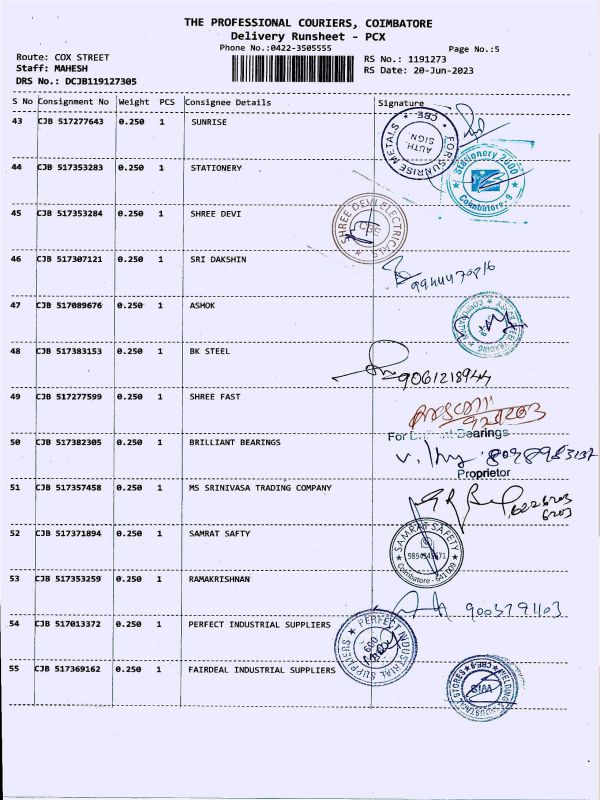 THE PROFESSIONAL COURIERS, COIMBATORE
Delivery Runsheet - PCX
Phone No.:0422-3505555
Page No.:5
Route: COX STREET
Staff: MAHESH
DRS No.: DCJB119127305
RS No.: 1191273
RS Date: 20-Jun-2023
S No Consignment No Weight PCS Consignee Details Signature
43 CJB 517277643 0.250 1 SUNRISE
FOR SUNRISE METALS CBE AUTH. SIGN.
44 CJB 517353283 0.250 1 STATIONERY
Stationery 2000 Coimbatore-9
45 CJB 517353284 0.250 1 SHREE DEVI
SHREE DEVI ELECTRICALS CBE
46 CJB 517307121 0.250 1 SRI DAKSHIN
47 CJB 517089676 0.250 1 ASHOK
48 CJB 517383153 0.250 1 BK STEEL
9061218944
49 CJB 517277599 0.250 1 SHREE FAST
50 CJB 517382305 0.250 1 BRILLIANT BEARINGS
For Brilliant Bearings
Proprietor
51 CJB 517357458 0.250 1 MS SRINIVASA TRADING COMPANY
52 CJB 517371894 0.250 1 SAMRAT SAFTY
SAMRAT SAFETY Coimbatore - 641 009
53 CJB 517353259 0.250 1 RAMAKRISHNAN
54 CJB 517013372 0.250 1 PERFECT INDUSTRIAL SUPPLIERS
PERFECT INDUSTRIAL SUPPLIERS
55 CJB 517369162 0.250 1 FAIRDEAL INDUSTRIAL SUPPLIERS